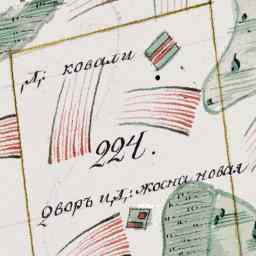 ,Д,: ковали
224.
Дворъ ц,Д,: жосна новая